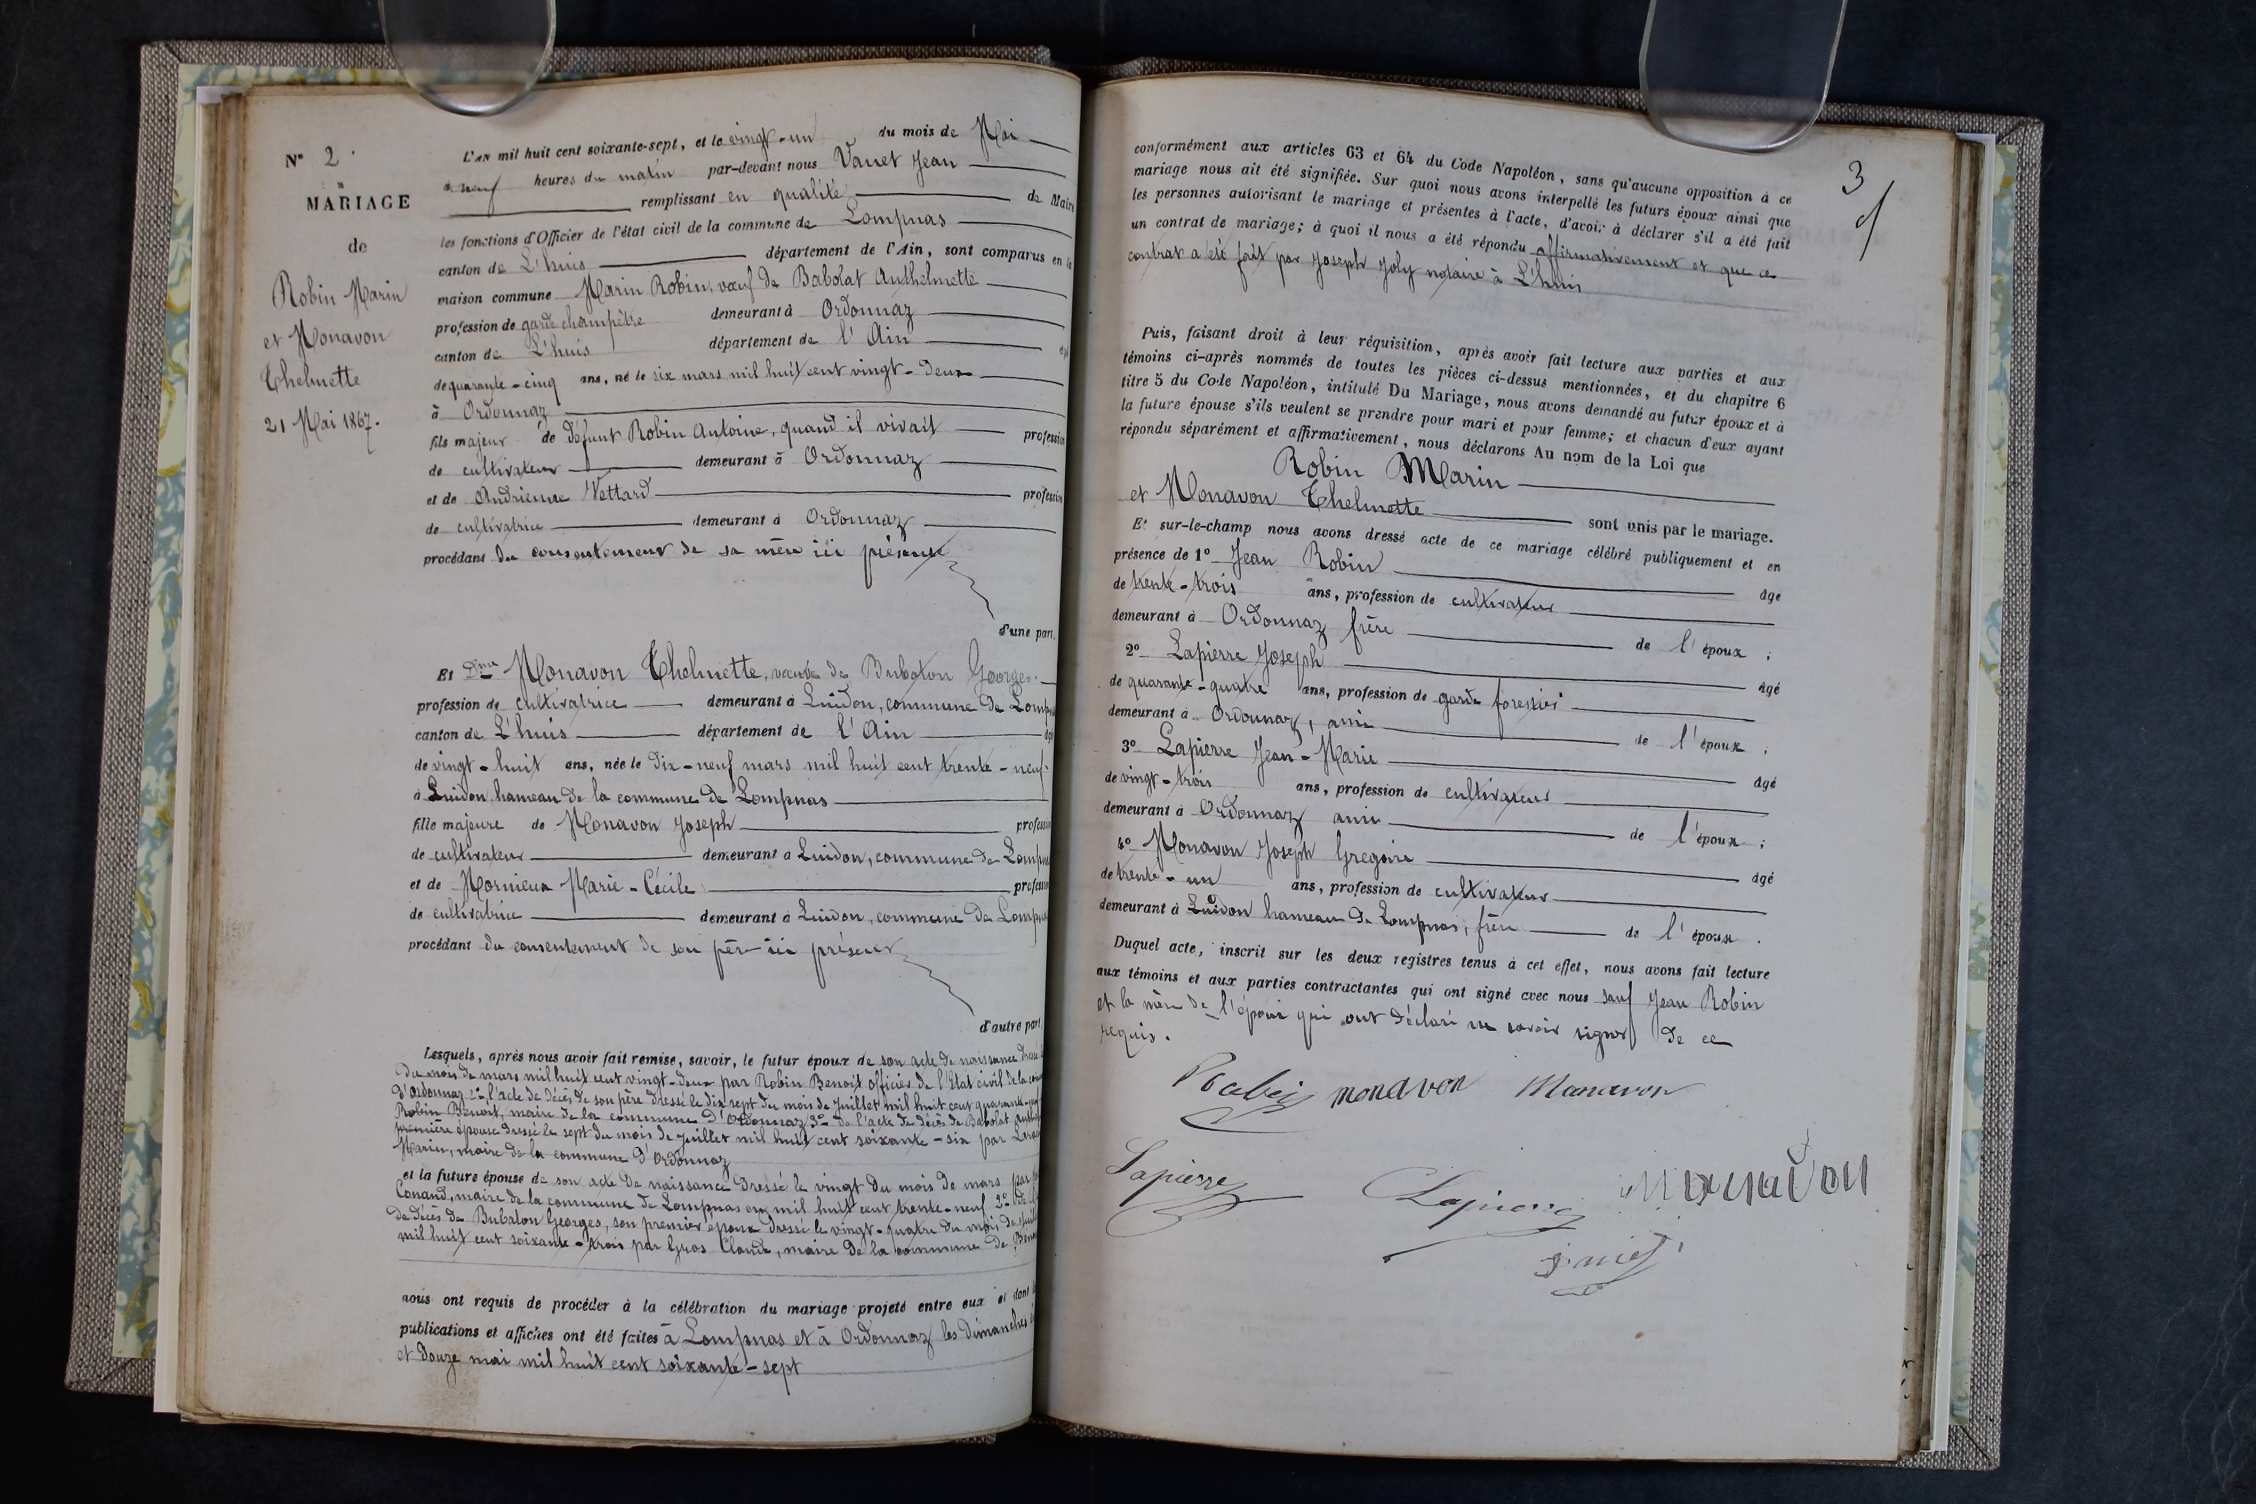 N° 2.
MARIAGE
de
Robin Marin
et Monavon
Thelmette
21 Mai 1867.
L'an mil huit cent soixante-sept, et le vingt-un du mois de Mai
à neuf heures du matin par-devant nous Vauet Jean
remplissant en qualité de Maire
les fonctions d'Officier de l'état civil de la commune de Lompnas
canton de L'huis département de l'Ain, sont comparus en la
maison commune Marin Robin, vœuf de Babolat Anthelmette
profession de garde champêtre demeurant à Ordonnaz
canton de L'huis département de l'Ain
de quarante-cinq ans, né le six mars mil huit cent vingt-deux
à Ordonnaz
fils majeur de défunt Robin Antoine, quand il vivait profession
de cultivateur demeurant à Ordonnaz
et de Andrienne Vettard profession
de cultivatrice demeurant à Ordonnaz
procédant du consentement de sa mère ici présente
d'une part.
Et Dme Monavon Thelmette, vœuve de Bubaton Georges.
profession de cultivatrice demeurant à Luidon, commune de Lompn
canton de L'huis département de l'Ain
de vingt-huit ans, née le dix-neuf mars mil huit cent trente-neuf.
à Luidon hameau de la commune de Lompnas
fille majeure de Monavon Joseph profession
de cultivateur demeurant à Luidon, commune de Lompn
et de Mornieux Marie-Cécile profession
de cultivatrice demeurant à Luidon, commune de Lompn
procédant du consentement de son père ici présent
d'autre part.
Lesquels, après nous avoir fait remise, savoir, le futur époux de son acte de naissance
du mois de mars mil huit cent vingt-deux par Robin Benoit officier de l'Etat civil de la
d'Ordonnaz 2° l'acte de décès de son père dressé le dix sept du mois de Juillet mil huit cent
Robin Benoit, maire de la commune d'Ordonnaz 3° de l'acte de décès de Babolat
première épouse dressé le sept du mois de Juillet mil huit cent soixante-six par
Marin, maire de la commune d'Ordonnaz
et la future épouse de son acte de naissance dressé le vingt du mois de mars par
Conand, maire de la commune de Lompnas en mil huit cent trente-neuf 2° de
de décès de Bubaton Georges, son premier époux dressé le vingt-quatre du mois de
mil huit cent soixante-trois par Gros Claude, maire de la commune de
nous ont requis de procéder à la célébration du mariage projeté entre eux et dont
publications et affiches ont été faites à Lompnas et à Ordonnaz les dimanches
et douze mai mil huit cent soixante-sept
3
conformément aux articles 63 et 64 du Code Napoléon, sans qu'aucune opposition à ce
mariage nous ait été signifiée. Sur quoi nous avons interpellé les futurs époux ainsi que
les personnes autorisant le mariage et présentes à l'acte, d'avoir à déclarer s'il a été fait
un contrat de mariage; à quoi il nous a été répondu affirmativement et que ce
contrat a été fait par Joseph Joly notaire à L'huis
Puis, faisant droit à leur réquisition, après avoir fait lecture aux parties et aux
témoins ci-après nommés de toutes les pièces ci-dessus mentionnées, et du chapitre 6
titre 5 du Code Napoléon, intitulé Du Mariage, nous avons demandé au futur époux et à
la future épouse s'ils veulent se prendre pour mari et pour femme; et chacun d'eux ayant
répondu séparément et affirmativement, nous déclarons Au nom de la Loi que
Robin Marin
et Monavon Thelmette sont unis par le mariage.
Et sur-le-champ nous avons dressé acte de ce mariage célébré publiquement et en
présence de 1° Jean Robin âgé
de trente-trois ans, profession de cultivateur
demeurant à Ordonnaz frère de l'époux ;
2° Lapierre Joseph âgé
de quarante-quatre ans, profession de garde forestier
demeurant à Ordonnaz, ami de l'époux ;
3° Lapierre Jean-Marie âgé
de vingt-trois ans, profession de cultivateur
demeurant à Ordonnaz ami de l'époux ;
4° Monavon Joseph Gregoire âgé
de trente-un ans, profession de cultivateur
demeurant à Luidon hameau de Lompnas, frère de l'épouse .
Duquel acte, inscrit sur les deux registres tenus à cet effet, nous avons fait lecture
aux témoins et aux parties contractantes qui ont signé avec nous sauf Jean Robin
et la mère de l'époux qui ont déclaré ne savoir signer de ce
requis.
Robin monavon Monavon
Lapierre Lapierre Monavon